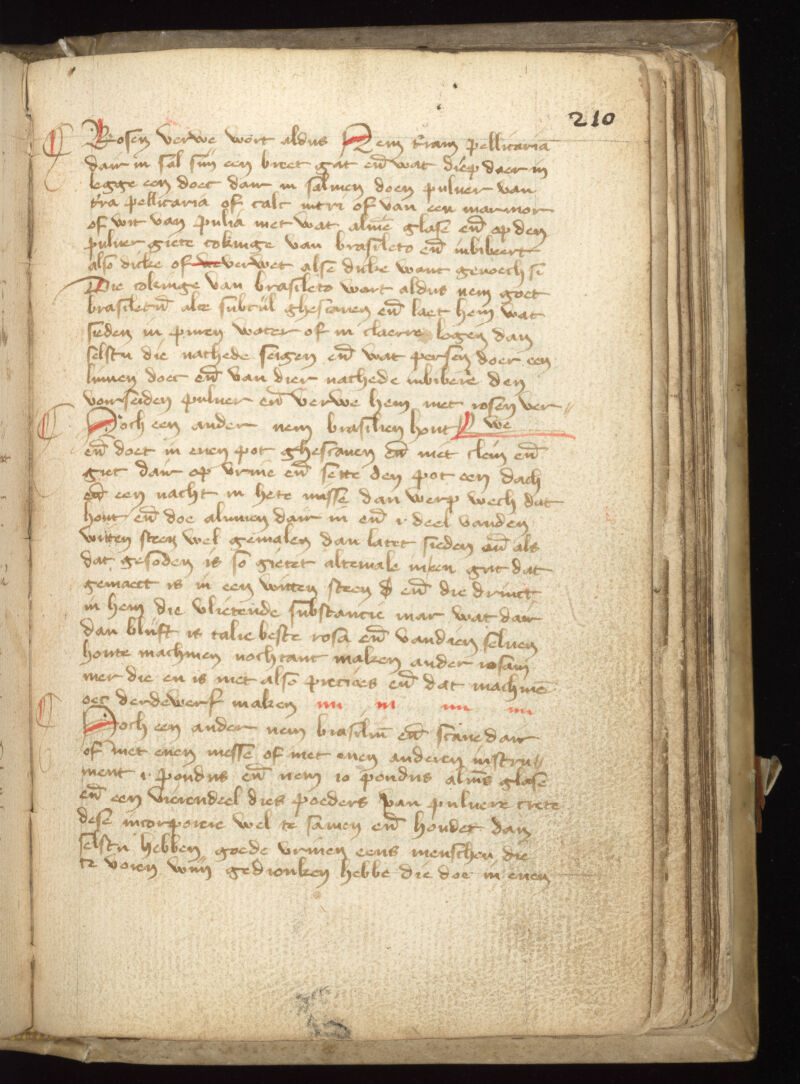 210
Rosen verwe wort aldus Nem tram pellicaria
dair in sal sijn een breet gat en̄ wat diep daer in
legge een doec dair in salmen doen puluer van
tra pellicaria of calc nitri of van een marmor
of wit van pulia met wat alum̄ glase en̄ op den
puluer giete cokinge van brasileto en̄ inbibeert
also dicke of we verwet alse dicke want genoech si
Die cokinge van brasileto wort aldus nem goet
brasiletū alte subtijl ghescauen en̄ laet hem wat
sieden in puren water of in claerre logen dan
selstu die nachede seigen en̄ wat persen doer een
linnen doec en̄ van dier nachede inbibere den
voirseiden puluer en̄ verwe hem met rosen ver〃
Noch een ander nem brasilien hout we
en̄ doet in enen pot ghescauen en̄ met clein en̄
giet dair op vrine en̄ sette den pot een dach
en̄ een nacht in hete misse dan werp wech dat
hout en̄ doe alumen dair in en̄ 1 deel vanden
witten steen wel gemalen dan latet sieden en̄ als
dat gesoden is so gietet altemale in een gat dat
gemaect is in een witten steen en̄ die drinct
in hem die vlietende substancie mar wat dair
dan blijft is talre beste rosa en̄ vandien seluen
houte machmen nochtant maken ander rosam
mer die en is niet also precioes en̄ dat machmē
oec derdewerf maken
Noch een ander nem brasiliū en̄ scane dair
of met enen messe of met enen anderen instru〃
ment 1 pondus en̄ nem 10 pondus alum̄s glase
en̄ een vierendeel dies poeders van puluere crete
dese incorporere wel te samen en̄ houdet dan
selstu hebben goede vrinen eens menschen die
te voren wijn gedronken hebbe die doe in enen